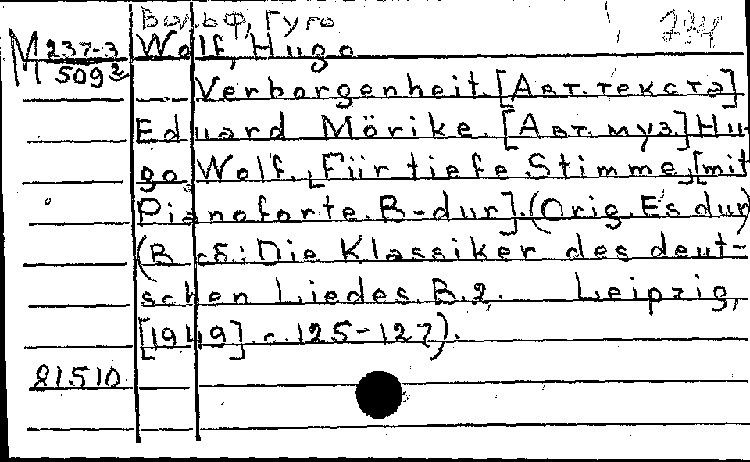 Вольф, Гуго
234
М 237-3
5092
Wolf, Hugo
Verborgenheit. [Авт. текста]
Eduard Mörike. [Авт. муз.] Hu-
go Wolf. Für tiefe Stimme, [mit
Pianoforte. B-dur]. (Orig. Es dur)
(В сб: Die Klassiker des deut-
schen Liedes. B. 2. Leipzig,
[1949]. с. 125-127).
81510